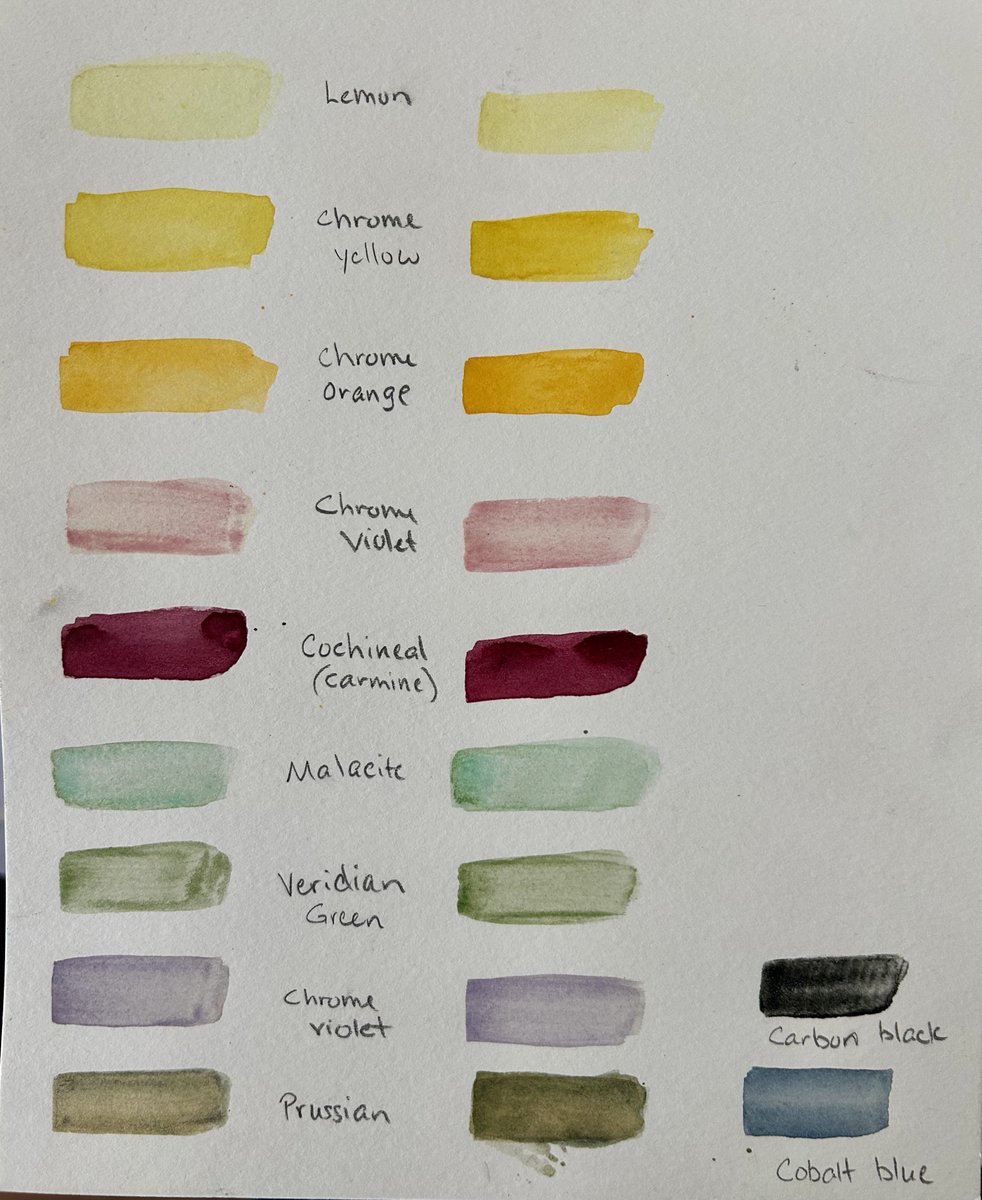 Lemon
Chrome
Yellow
Chrome
Orange
Chrome
Violet
Cochineal
(carmine)
Malacite
Veridian
Green
Chrome
violet
Prussian
Carbon black
Cobalt blue